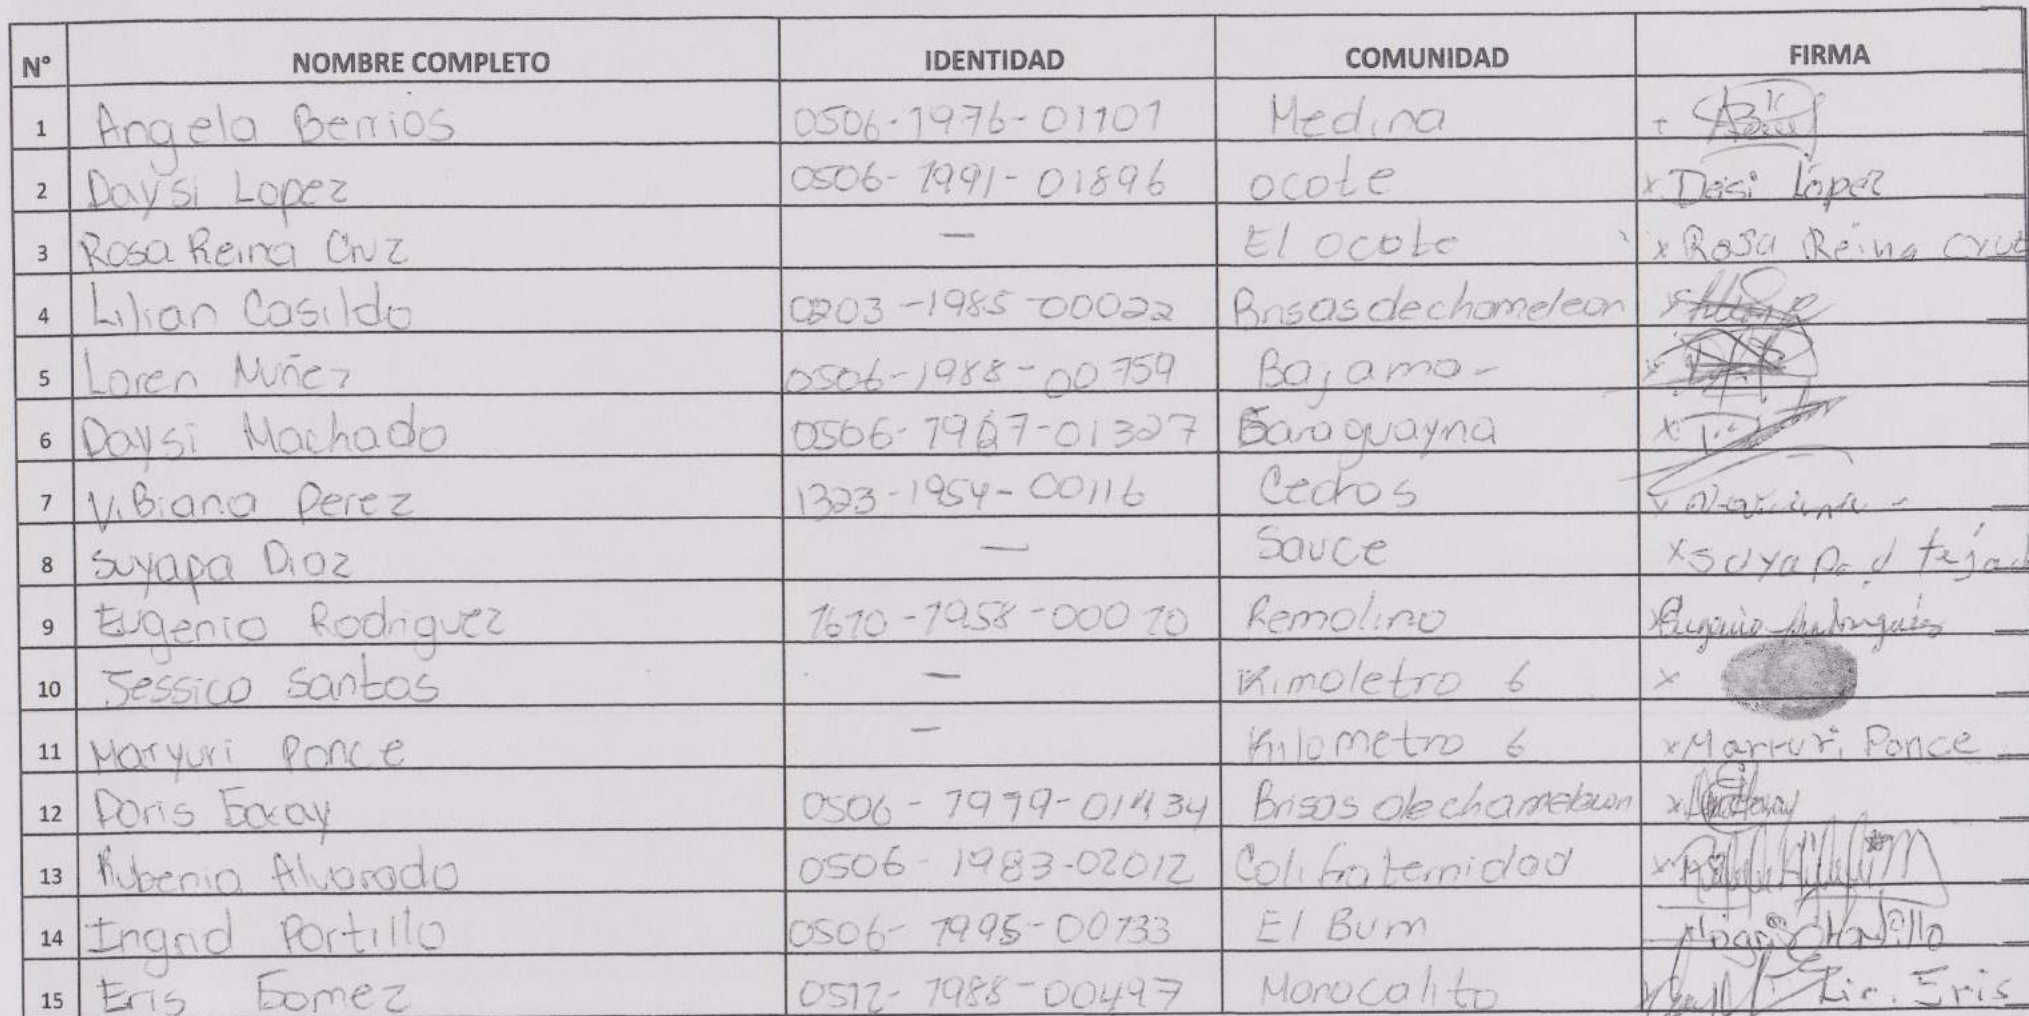 N° NOMBRE COMPLETO IDENTIDAD COMUNIDAD FIRMA
1 Angela Berrios 0506-1976-01101 Medina
2 Daysi Lopez 0506-1991-01896 ocote x Deisi López
3 Rosa Reina Cruz — El ocote x Rosa Reina Cruz
4 Lilian Casildo 0203-1985-00022 Brisas de chameleon
5 Loren Nuñez 0506-1988-00759 Bajamo-
6 Daysi Machado 0506-1967-01327 Garaguayna x
7 ViBiana Perez 1323-1954-00116 Cedros
8 Suyapa Diaz — Sauce x Suyapa d tejad
9 Eugenio Rodriguez 1610-1958-00010 Remolino x Eugenio Rodriguez
10 Jessica Santos — Kimoletro 6 x
11 Maryuri Ponce — Kilometro 6 x Maryuri Ponce
12 Doris Garay 0506-1979-01434 Brisas de chameleon x
13 Rubenia Alvarado 0506-1983-02012 Col. fraternidad x
14 Ingrid Portillo 0506-1995-00733 El Bum Ingrid Portillo
15 Eris Gomez 0512-1988-00497 Morocalito Lic. Eris